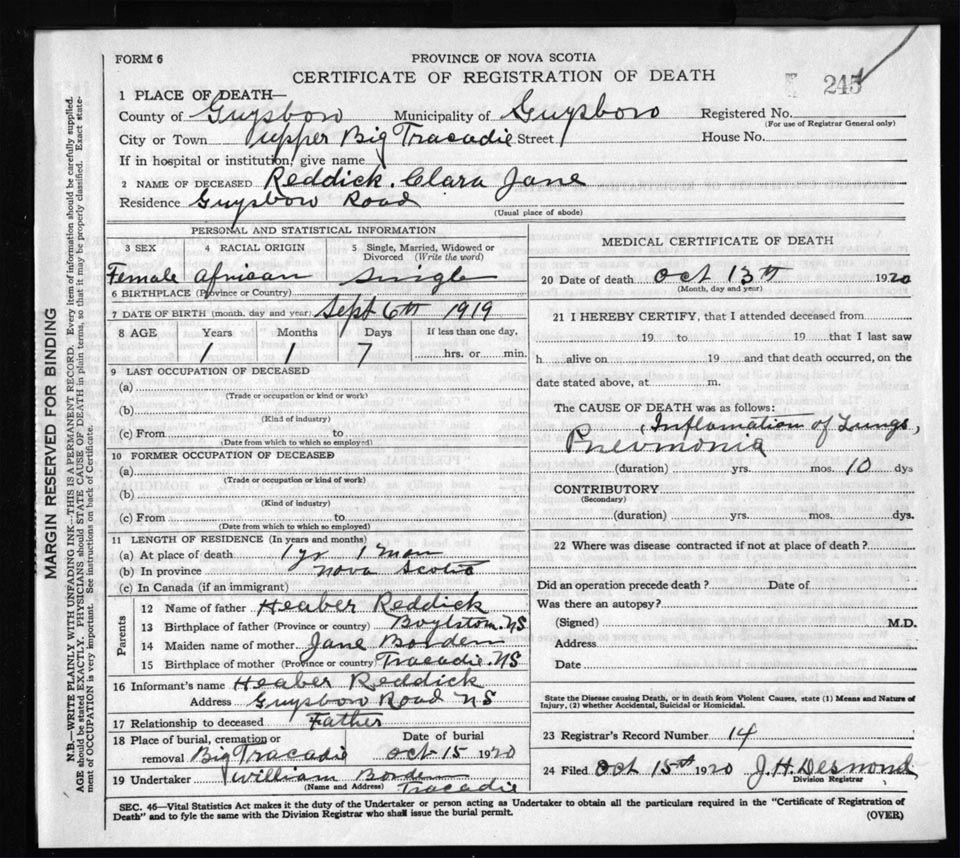 FORM 6
PROVINCE OF NOVA SCOTIA
CERTIFICATE OF REGISTRATION OF DEATH
245
1 PLACE OF DEATH—
County of Guysboro Municipality of Guysboro Registered No.
(For use of Registrar General only)
City or Town Upper Big Tracadie Street House No.
If in hospital or institution, give name
2 NAME OF DECEASED Reddick. Clara Jane
Residence Guysboro Road
(Usual place of abode)
PERSONAL AND STATISTICAL INFORMATION
3 SEX 4 RACIAL ORIGIN 5 Single, Married, Widowed or Divorced (Write the word)
Female African Single
6 BIRTHPLACE (Province or Country)
7 DATE OF BIRTH (month, day and year) Sept 6th 1919
8 AGE Years Months Days If less than one day,
1 1 7 hrs. or min.
9 LAST OCCUPATION OF DECEASED
(a)
(Trade or occupation or kind or work)
(b)
(Kind of industry)
(c) From to
(Date from which to which so employed)
10 FORMER OCCUPATION OF DECEASED
(a)
(Trade or occupation or kind of work)
(b)
(Kind of industry)
(c) From to
(Date from which to which so employed)
11 LENGTH OF RESIDENCE (In years and months)
(a) At place of death 1 yr 1 mon
(b) In province Nova Scotia
(c) In Canada (if an immigrant)
Parents
12 Name of father Heaber Reddick
13 Birthplace of father (Province or country) Boylston. NS
14 Maiden name of mother Jane Borden
15 Birthplace of mother (Province or country) Tracadie. NS
16 Informant's name Heaber Reddick
Address Guysboro Road NS
17 Relationship to deceased Father
18 Place of burial, cremation or Date of burial
removal Big Tracadie Oct 15 1920
19 Undertaker William Borden
(Name and Address) Tracadie
MEDICAL CERTIFICATE OF DEATH
20 Date of death Oct 13th 1920
(Month, day and year)
21 I HEREBY CERTIFY, that I attended deceased from
19 to 19 that I last saw
h alive on 19 and that death occurred, on the
date stated above, at m.
The CAUSE OF DEATH was as follows:
(Inflamation of Lungs,
Pneumonia
(duration) yrs. mos. 10 dys
CONTRIBUTORY
(Secondary)
(duration) yrs. mos. dys.
22 Where was disease contracted if not at place of death?
Did an operation precede death? Date of
Was there an autopsy?
(Signed) M.D.
Address
Date
State the Disease causing Death, or in death from Violent Causes, state (1) Means and Nature of
Injury, (2) whether Accidental, Suicidal or Homicidal.
23 Registrar's Record Number 14
24 Filed Oct 15th 1920 J. H. Desmond
Division Registrar
SEC. 46—Vital Statistics Act makes it the duty of the Undertaker or person acting as Undertaker to obtain all the particulars required in the "Certificate of Registration of
Death" and to fyle the same with the Division Registrar who shall issue the burial permit. (OVER)
MARGIN RESERVED FOR BINDING
N.B.—WRITE PLAINLY WITH UNFADING INK—THIS IS A PERMANENT RECORD. Every item of information should be carefully supplied.
AGE should be stated EXACTLY. PHYSICIANS should STATE CAUSE OF DEATH in plain terms, so that it may be properly classified. Exact state-
ment of OCCUPATION is very important. See instructions on back of Certificate.